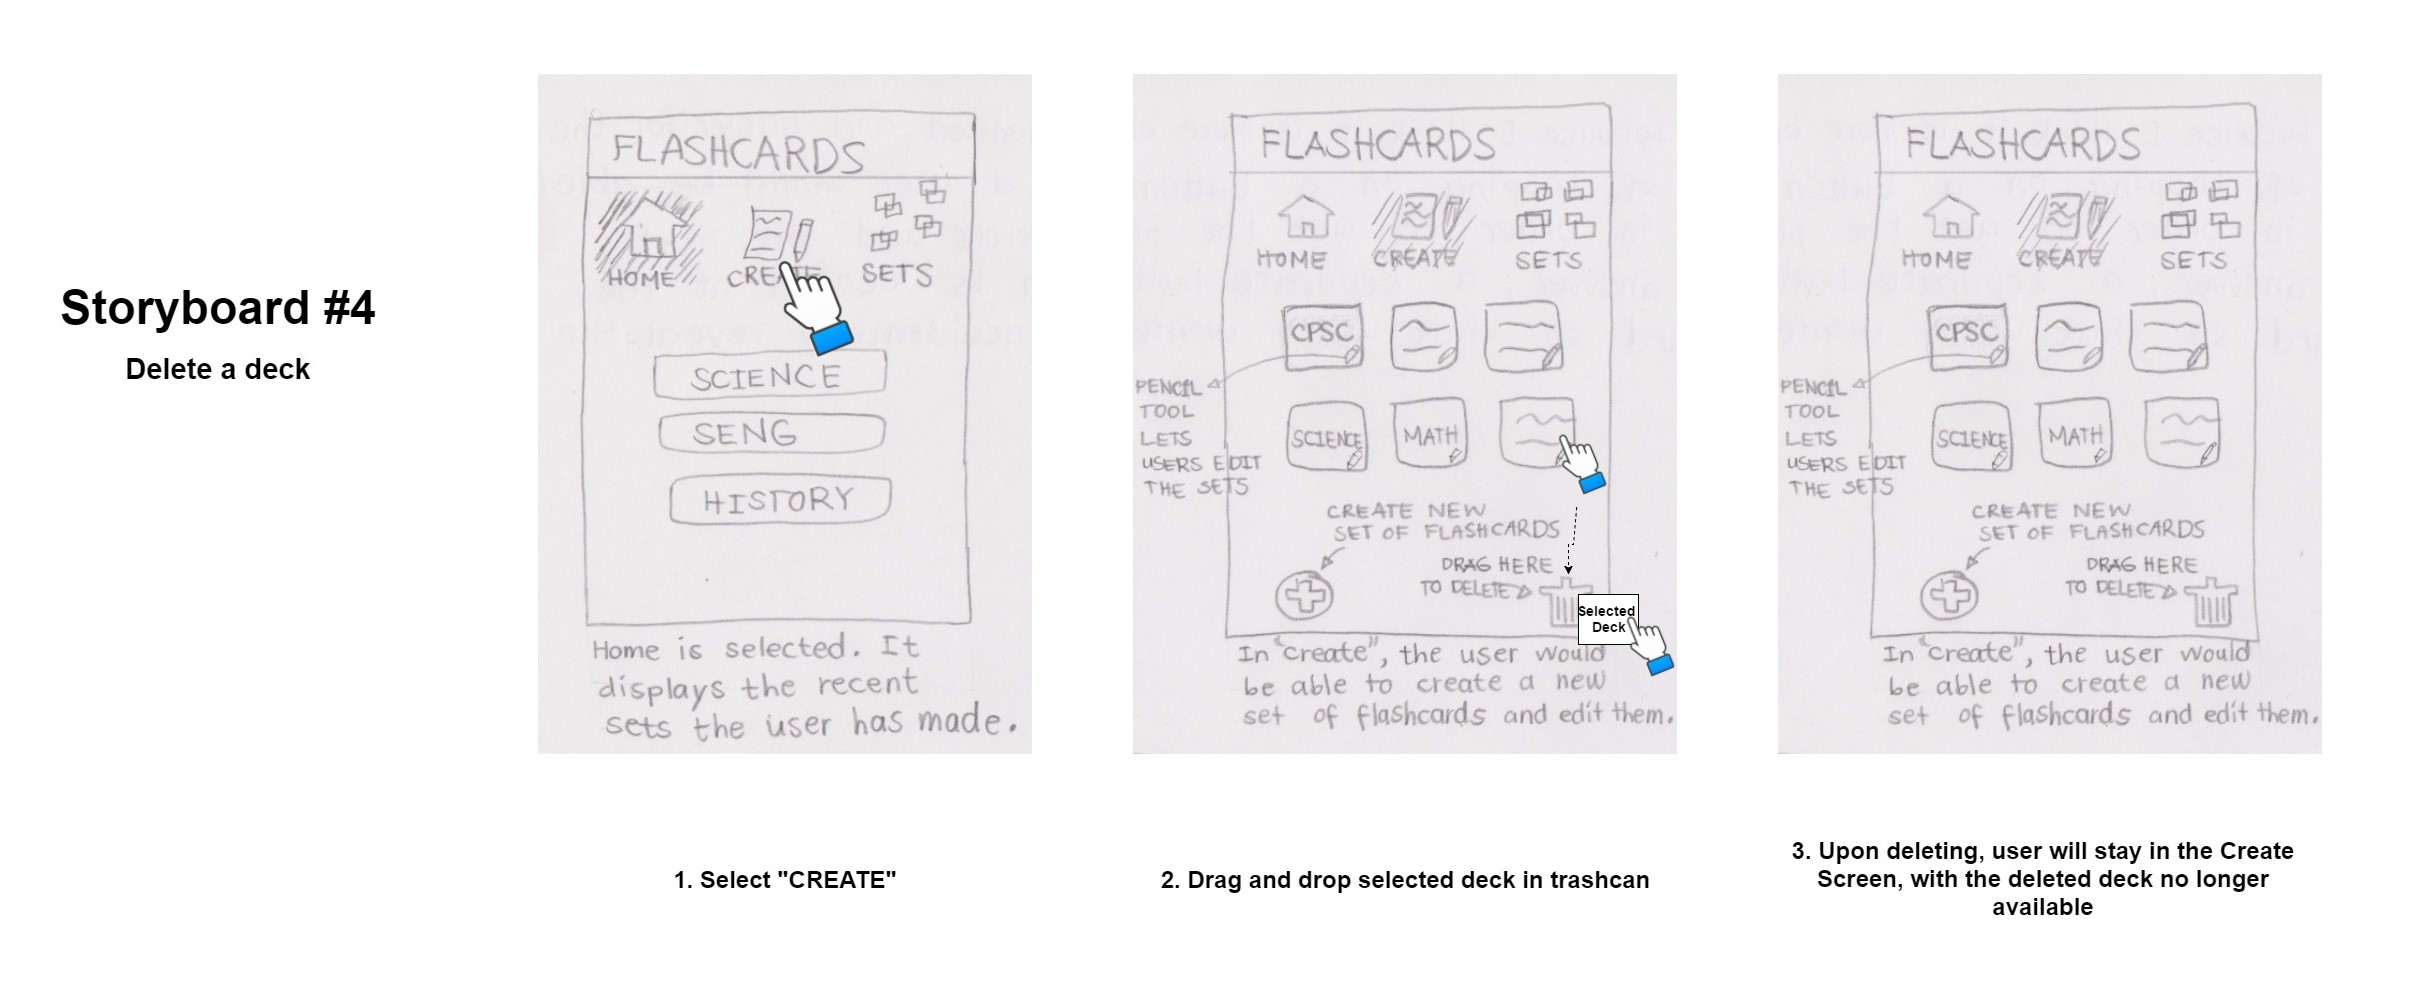 Storyboard #4
Delete a deck
FLASHCARDS
HOME
CREATE
SETS
SCIENCE
SENG
HISTORY
Home is selected. It
displays the recent
sets the user has made.
1. Select "CREATE"
FLASHCARDS
HOME
CREATE
SETS
CPSC
PENCIL
TOOL
LETS
USERS EDIT
THE SETS
SCIENCE
MATH
CREATE NEW
SET OF FLASHCARDS
DRAG HERE
TO DELETE
Selected
Deck
In "create", the user would
be able to create a new
set of flashcards and edit them.
2. Drag and drop selected deck in trashcan
FLASHCARDS
HOME
CREATE
SETS
CPSC
PENCIL
TOOL
LETS
USERS EDIT
THE SETS
SCIENCE
MATH
CREATE NEW
SET OF FLASHCARDS
DRAG HERE
TO DELETE
In "create", the user would
be able to create a new
set of flashcards and edit them.
3. Upon deleting, user will stay in the Create
Screen, with the deleted deck no longer
available